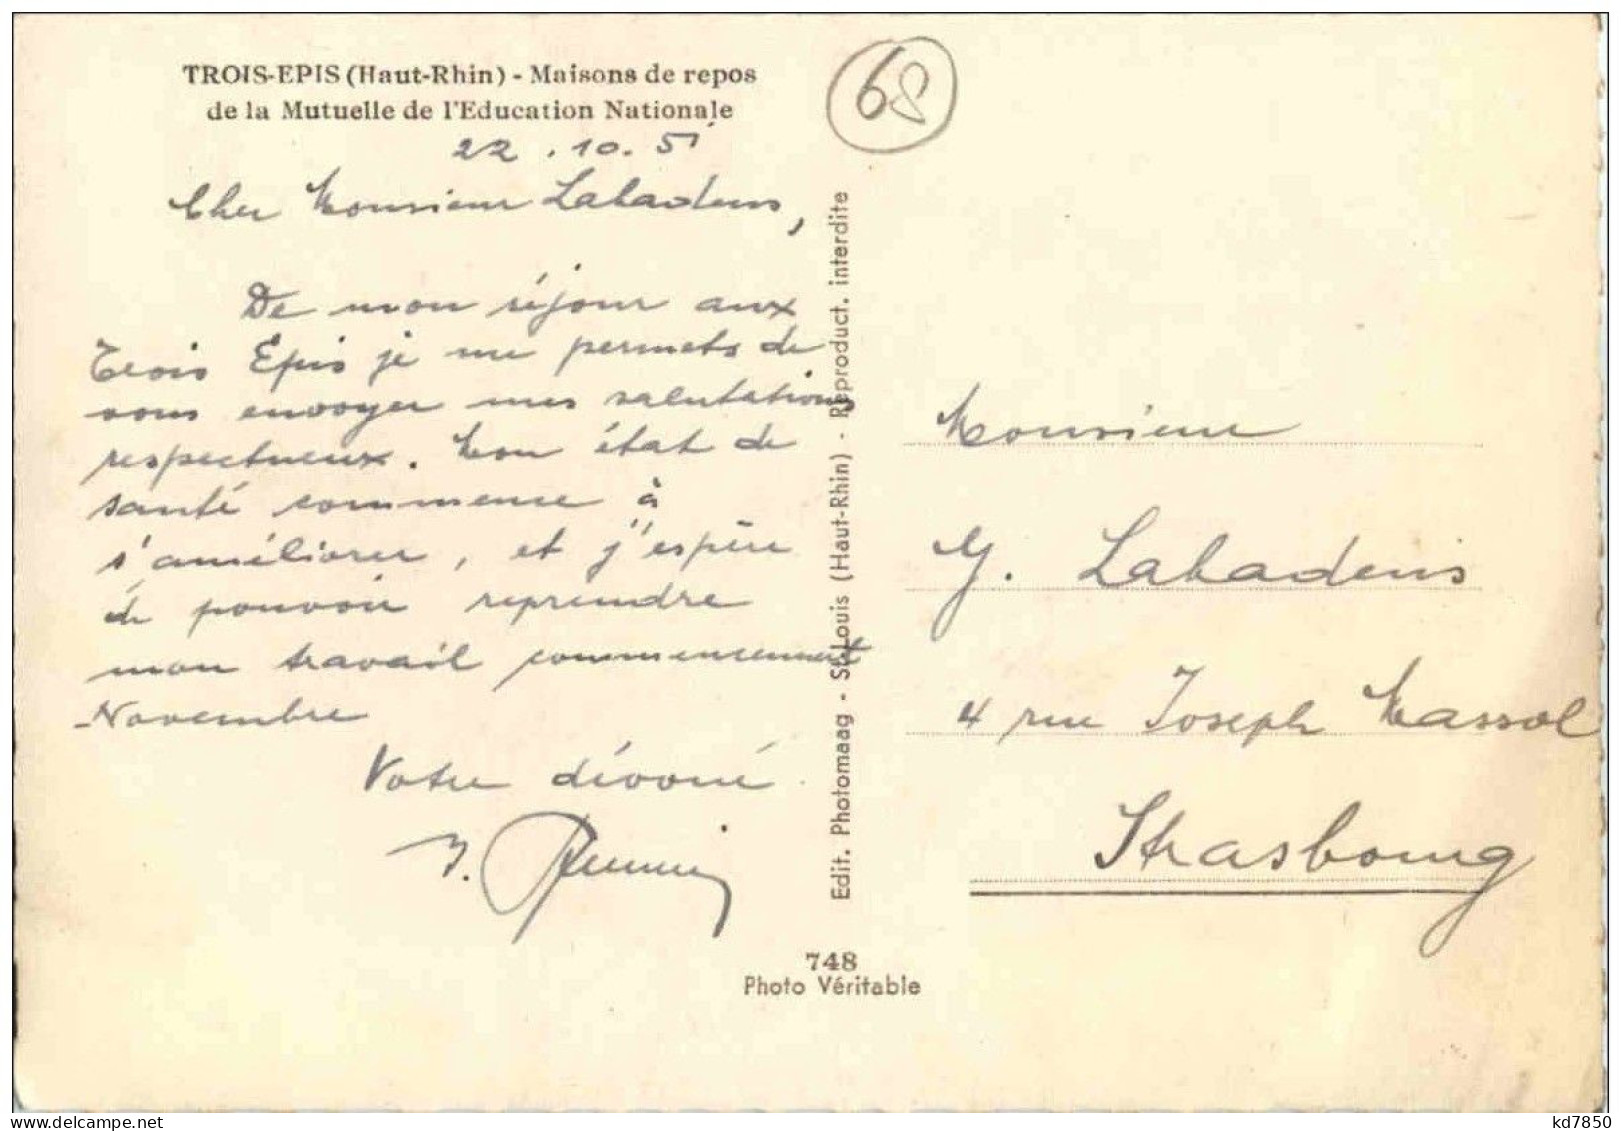 TROIS-EPIS (Haut-Rhin) - Maisons de repos
de la Mutuelle de l'Education Nationale
68
22.10.51
Cher Monsieur Labadens,
De mon séjour aux
Trois Épis je me permets de
vous envoyer mes salutations
respectueux. Mon état de
santé commence à
s'améliorer, et j'espère
de pouvoir reprendre
mon travail commencement
Novembre
Votre dévoué
Edit. Photomaag - St-Louis (Haut-Rhin) - Reproduct. interdite
748
Photo Véritable
Monsieur
G. Labadens
4 rue Joseph Massol
Strasbourg
delcampe.net
kd7850